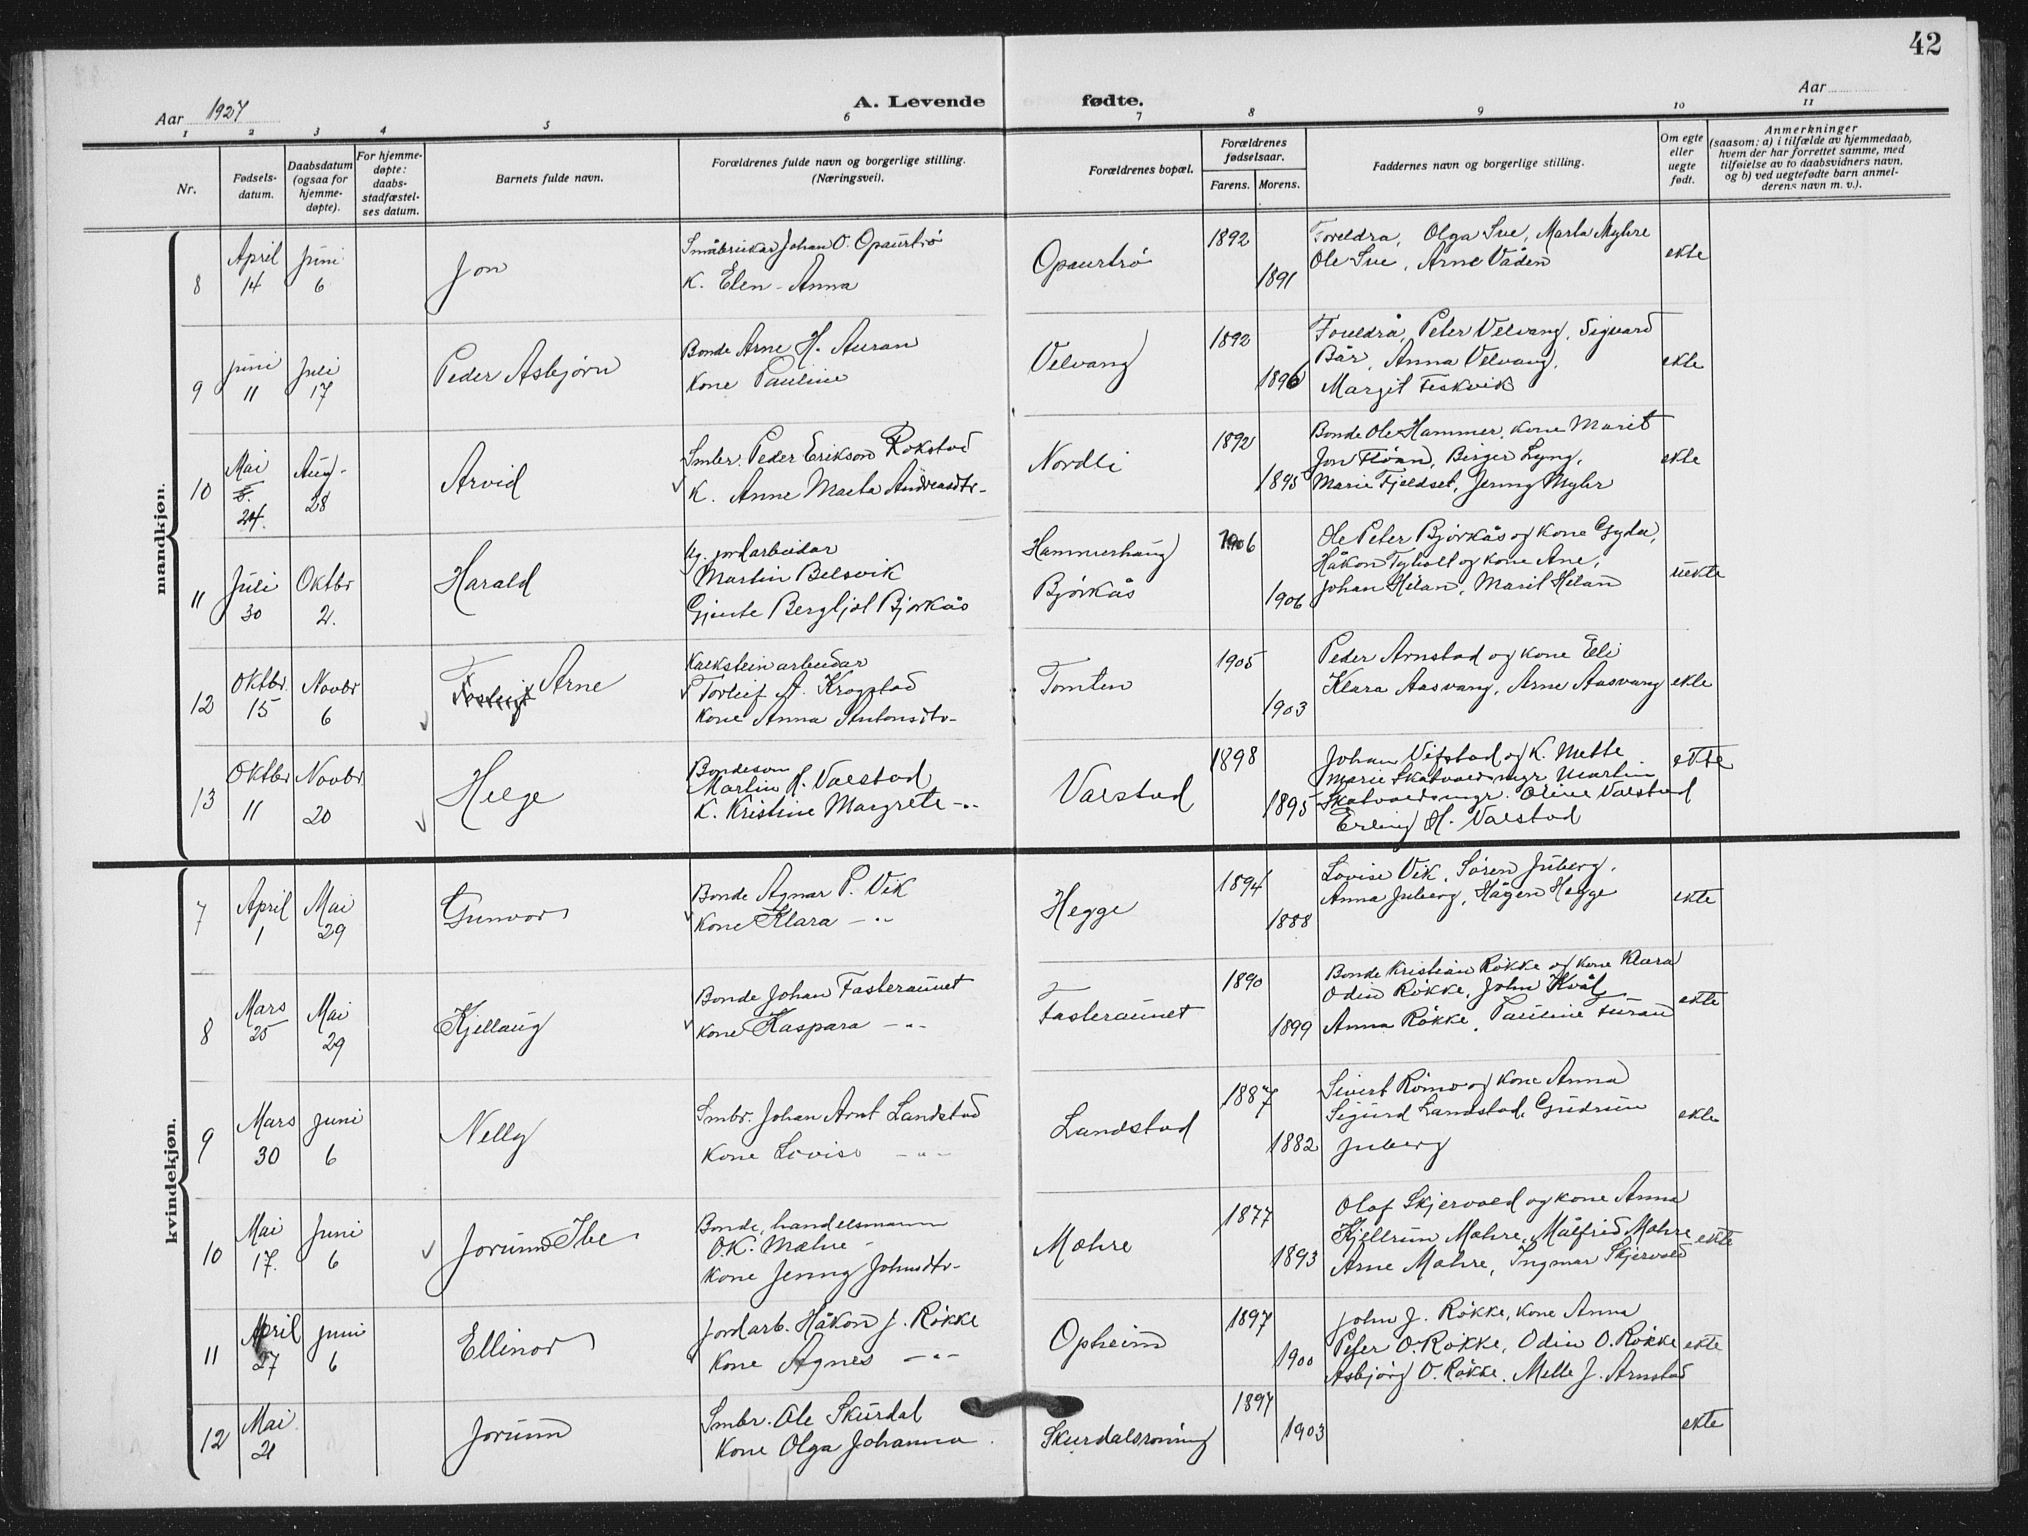 42
Aar 1927
A. Levende fødte.
Aar
1 2 3 4 5 6 7 8 9 10 11
Nr.
Fødsels-
datum.
Daabsdatum
(ogsaa for
hjemme-
døpte).
For hjemme-
døpte:
daabs-
stadfæstel-
ses datum.
Barnets fulde navn.
Forældrenes fulde navn og borgerlige stilling.
(Næringsvei).
Forældrenes bopæl.
Forældrenes
fødselsaar.
Farens. Morens.
Faddernes navn og borgerlige stilling.
Om egte
eller
uegte
født.
Anmerkninger
(saasom: a) i tilfælde av hjemmedaab,
hvem der har forrettet samme, med
tilføielse av to daabsvidners navn,
og b) ved uegtefødte barn anmel-
derens navn m. v.).
mandkjøn.
8
April
14
Juni
6
Jon
Småbrukar Johan O. Opaurtrö
K. Elen-Anna
Opaurtrö
1892
1891
Foreldra, Olga Sve, Marta Myhre
Ole Sve, Arne Våden
ekte
9
Juni
11
Juli
17
Peder Asbjørn
Bonde Arne H. Auran
Kone Pauline
Velvang
1892
1896
Foreldra, Peter Velvang, Sigvard
Bår, Anna Velvang,
Margit Fiskvik
ekte
10
Mai
24.
Aug.
28
Arvid
Smbr. Peder Erikson Rokstad
K. Anne Marta Andreasdtr-
Nordli
1892
1895
Bonde Ole Hammer, Kone Marit
Jon Floan, Birger Lyng,
Marie Fjeldset, Jenny Myhr
ekte
11
Juli
30
Oktbr
2.
Harald
Ug. jordarbeidar
Martin Belsvik
Gjente Bergljot Bjørkås
Hammerhaug
Bjørkås
1906
1906
Ole Peter Bjørkås og Kone Gyda,
Håkon Tyholt og Kone Ane,
Johan Hilan, Marit Hilan
uekte
12
Oktbr.
15
Novbr
6
Arne
Kalkstein arbeidar
Torleif A. Krogstad
Kone Anna Antonsdtr-
Tomten
1905
1903
Peder Arnstad og Kone Eli
Klara Aasvang, Arne Aasvang
ekte
13
Oktbr
11
Novbr
20
Helge
Bondeson
Martin H. Valstad
K. Kristine Margrete -"-
Valstad
1898
1895
Johan Vifstad og K. Mette
Marie Skatvoldsmyr Martin
Skatvoldsmyr. Oline Valstad
Erling H. Valstad
ekte
kvindekjøn.
7
April
1
Mai
29
Gunvor
Bonde Agnar P. Vik
Kone Klara -"-
Hegge
1894
1888
Lovise Vik, Sören Juberg,
Anna Juberg, Hågen Hegge
ekte
8
Mars
25
Mai
29
Kjellaug
Bonde Johan Fasteraunet
Kone Kaspara -"-
Fasteraunet
1890
1899
Bonde Kristian Røkke og Kone Klara
Odin Røkke, John Kvål,
Anna Røkke, Pauline Furan
ekte
9
Mars
30
Juni
6
Nelly
Smbr. Johan Arnt Landstad
Kone Lovise -"-
Landstad
1887
1882
Sivert Römo og Kone Anna
Sigurd Landstad, Gudrun
Juberg
ekte
10
Mai
17.
Juni
6
Jorunn Ibe
Bonde, handelsmann
O.K. Mæhre -
Kone Jenny Johnsdtr-
Mæhre
1877
1893
Olaf Skjervold og Kone Anna
Kjellrun Mæhre, Målfrid Mæhre
Arne Mæhre, Ingmar Skjervold
ekte
11
April
27
Juni
6
Ellinor
Jordarb. Håkon J. Røkke
Kone Agnes -"-
Opheim
1897
1900
John J. Røkke, Kone Anna
Peter O. Røkke, Odin O. Røkke
Asbjørg O. Røkke, Mette J. Arnstad
ekte
12
Mai
21
Jorunn
Smbr. Ole Skurdal
Kone Olga Johanna
Skurdalsröning
1897
1903
ekte